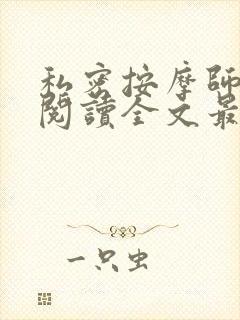 私密按摩師
閱讀全文最
一只虫